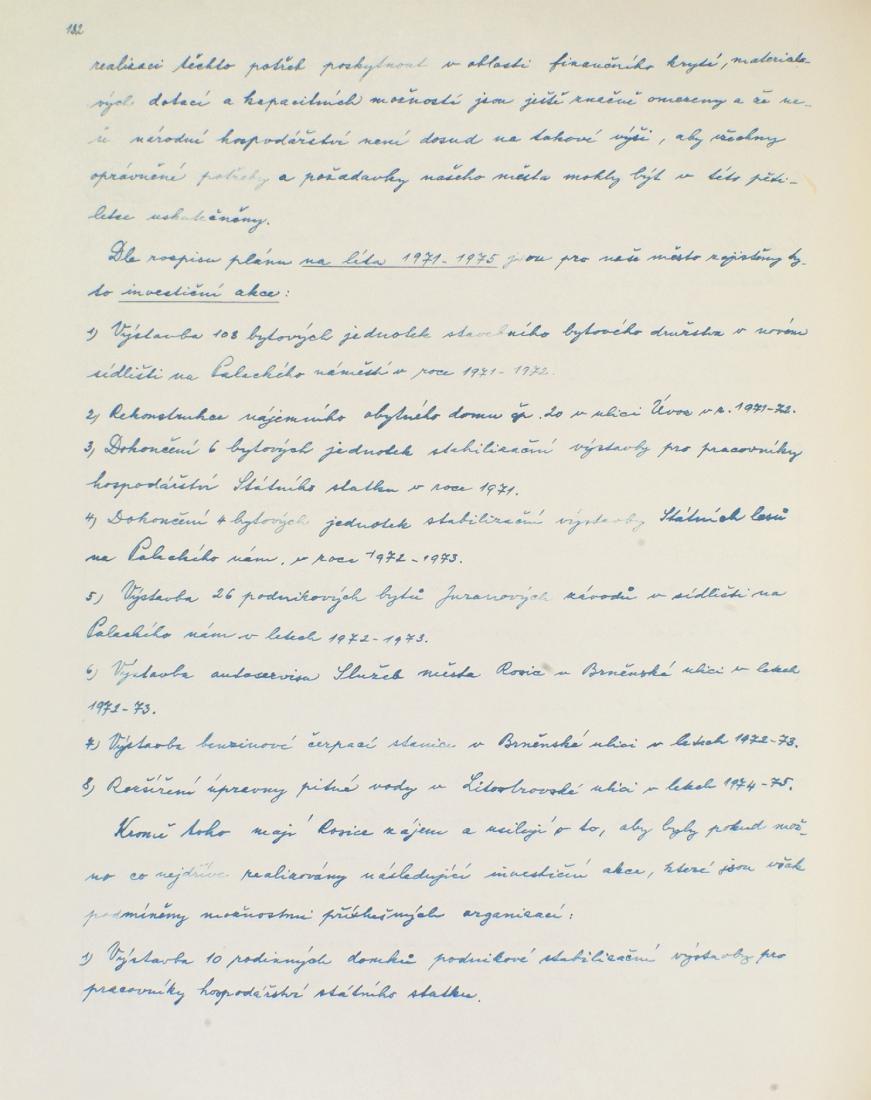 182
realizaci těchto potřeb poskytnout v oblasti finančního krytí, materiálo-
vých dotací a kapacitních možností jsou ještě značně omezeny a že na-
še národní hospodářství není dosud na takové výši, aby všechny
oprávněné potřeby a požadavky našeho města mohly být v této pěti-
letce uskutečněny.
Dle rozpisu plánu na léta 1971-1975 jsou pro naše město zajištěny ty-
to investiční akce:
1) Výstavba 108 bytových jednotek stavebního bytového družstva v novém
sídlišti na Palackého náměstí v roce 1971-1972.
2) Rekonstrukce nájemního obytného domu čp. 20 v ulici Úvoz v r. 1971-72.
3) Dokončení 6 bytových jednotek stabilizační výstavby pro pracovníky
hospodářství Státního statku v roce 1971.
4) Dokončení 4 bytových jednotek stabilizační výstavby Státních lesů
na Palackého nám. v roce 1972-1973.
5) Výstavba 26 podnikových bytů Juranových závodů v sídlišti na
Palackého nám v letech 1972-1973.
6) Výstavba autoservisu Služeb města Rosic v Brněnské ulici v letech
1972-73.
7) Výstavba benzinové čerpací stanice v Brněnské ulici v letech 1972-73.
8) Rozšíření úpravny pitné vody v Litostrovské ulici v letech 1974-75.
Kromě toho mají Rosice zájem a usilují o to, aby byly pokud mož-
no co nejdříve realizovány následující investiční akce, které jsou však
podmíněny možnostmi příslušných organizací:
1) Výstavba 10 rodinných domků podnikové stabilizační výstavby pro
pracovníky hospodářství státního statku.